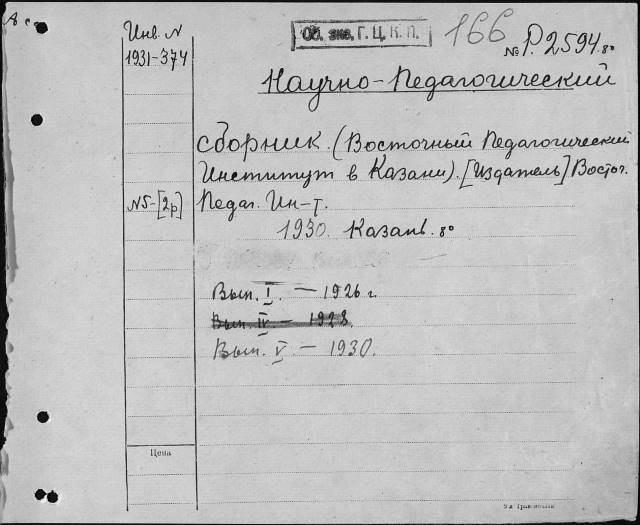 Инв. N
Об. экз. Г. Ц. К. П.
166
№ Р. 2594. 8°
1931-374
Научно-Педагогический
сборник. (Восточный Педагогический
Институт в Казани). [Издатель] Восточ.
N5-[2р] Педаг. Ин-т.
1930. Казань. 8°
Вып. I. — 1926 г.
Вып. IV — 1928.
Вып. V — 1930.
Цена